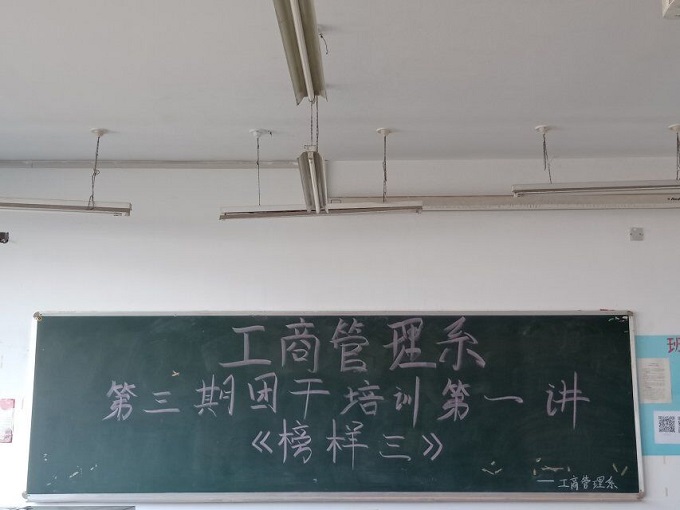 工商管理系
第三期团干培训第一讲
《榜样三》
一工商管理系
班